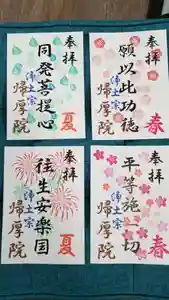 奉拝
願以此功徳
浄土宗
帰厚院
春
奉拝
平等施一切
浄土宗
帰厚院
春
奉拝
同発菩提心
浄土宗
帰厚院
夏
奉拝
往生安楽国
浄土宗
帰厚院
夏